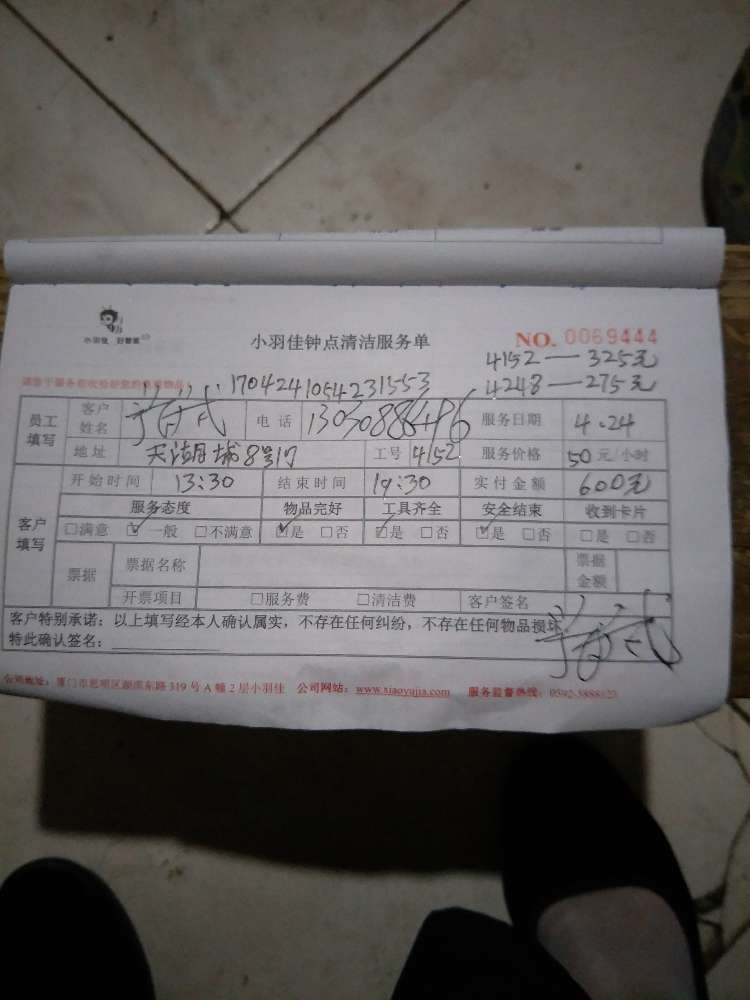 小羽佳 好管家
小羽佳钟点清洁服务单
NO. 0069444
4152 — 325元
4248 — 275元
1704241054231553
员工填写 客户姓名 电话 服务日期 4.24
地址 天湖城8号17 工号 4152 服务价格 50元 小时
开始时间 13:30 结束时间 19:30 实付金额 600元
客户填写 服务态度 物品完好 工具齐全 安全结束 收到卡片
□满意 ☑一般 □不满意 ☑是 □否 ☑是 □否 ☑是 □否 □是 □否
票据 票据名称 票据金额
开票项目 □服务费 □清洁费 客户签名
客户特别承诺：以上填写经本人确认属实，不存在任何纠纷，不存在任何物品损坏
特此确认签名：
公司地址：厦门市思明区湖滨东路 319 号 A 幢 2 层小羽佳 公司网站：www.xiaoyujia.com 服务监督热线：0592-5888123